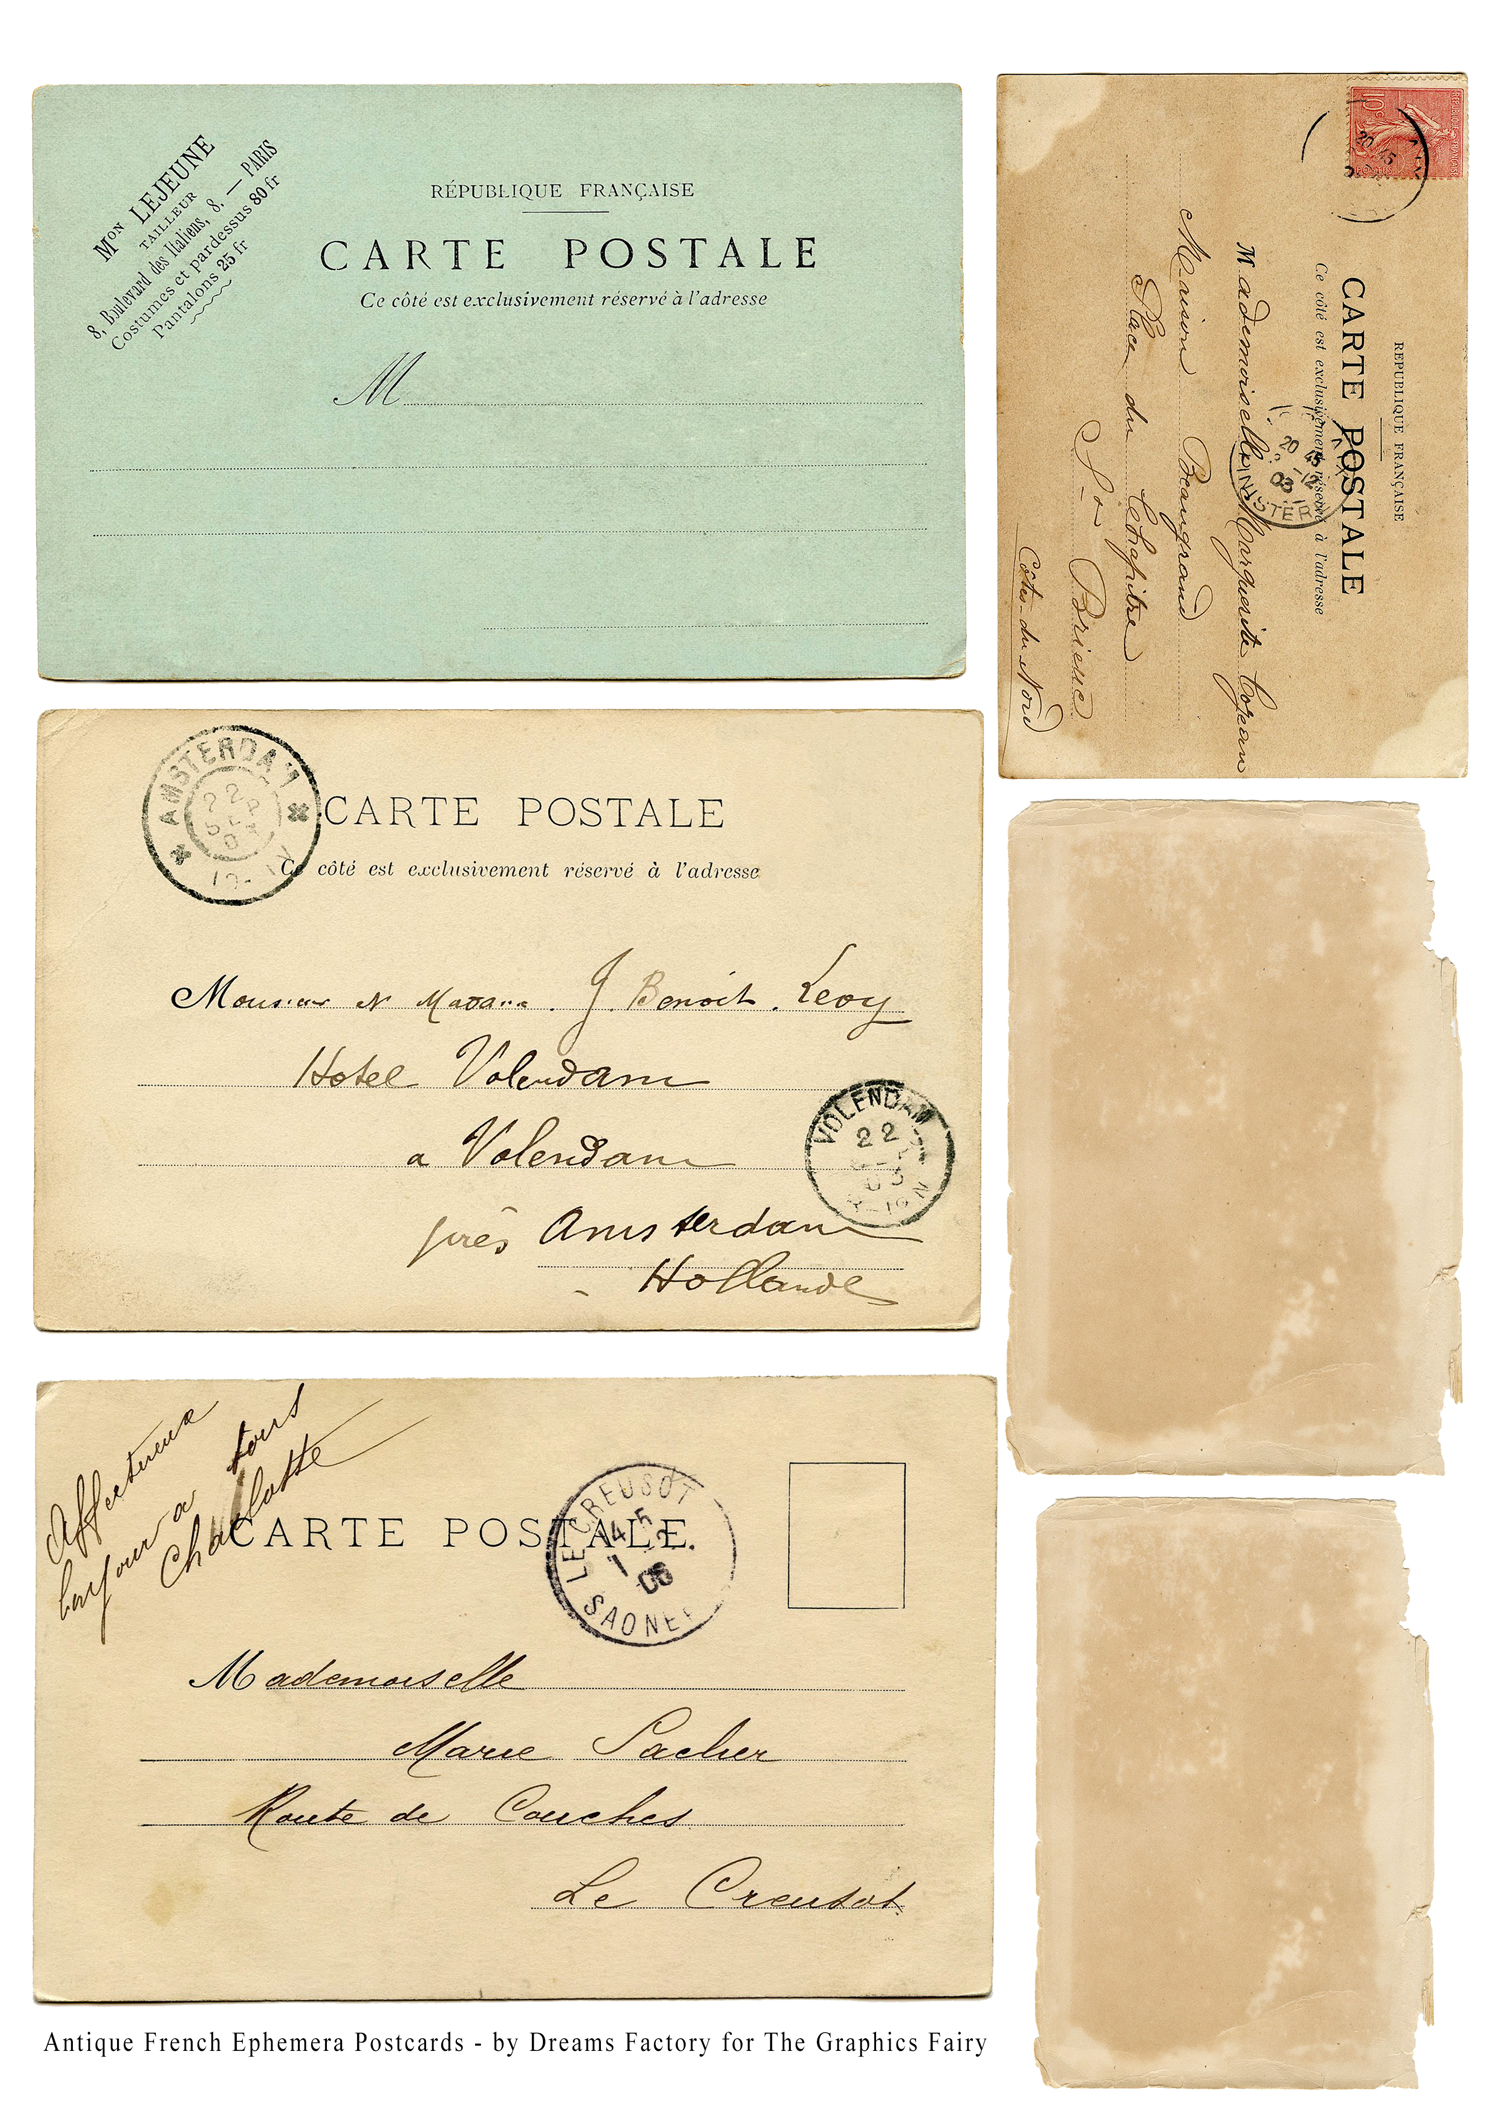 Mon LEJEUNE
TAILLEUR
8, Boulevard des Italiens, 8. — PARIS
Costumes et pardessus 80 fr
Pantalons 25 fr
RÉPUBLIQUE FRANÇAISE
CARTE POSTALE
Ce côté est exclusivement réservé à l'adresse
M
10c
REPUBLIQUE FRANÇAISE
CARTE POSTALE
Ce côté est exclusivement réservé à l'adresse
Mademoiselle Marguerite
Maison Beaugrand
Place du Chapitre
St Brieuc
Côtes-du-Nord
20 15
20 15
-12
03
FINISTERE
AMSTERDAM
22
CARTE POSTALE
Ce côté est exclusivement réservé à l'adresse
Monsieur et Madame J. Benoit. Levy
Hotel Volendam
a Volendam
près Amsterdam
Hollande
VOLENDAM
22
Affectueux
bonjour a tous
Charlotte
CARTE POSTALE.
LE CREUSOT
7 12
06
SAONE
Mademoiselle
Marie Sacher
Route de Couches
Le Creusot.
Antique French Ephemera Postcards - by Dreams Factory for The Graphics Fairy